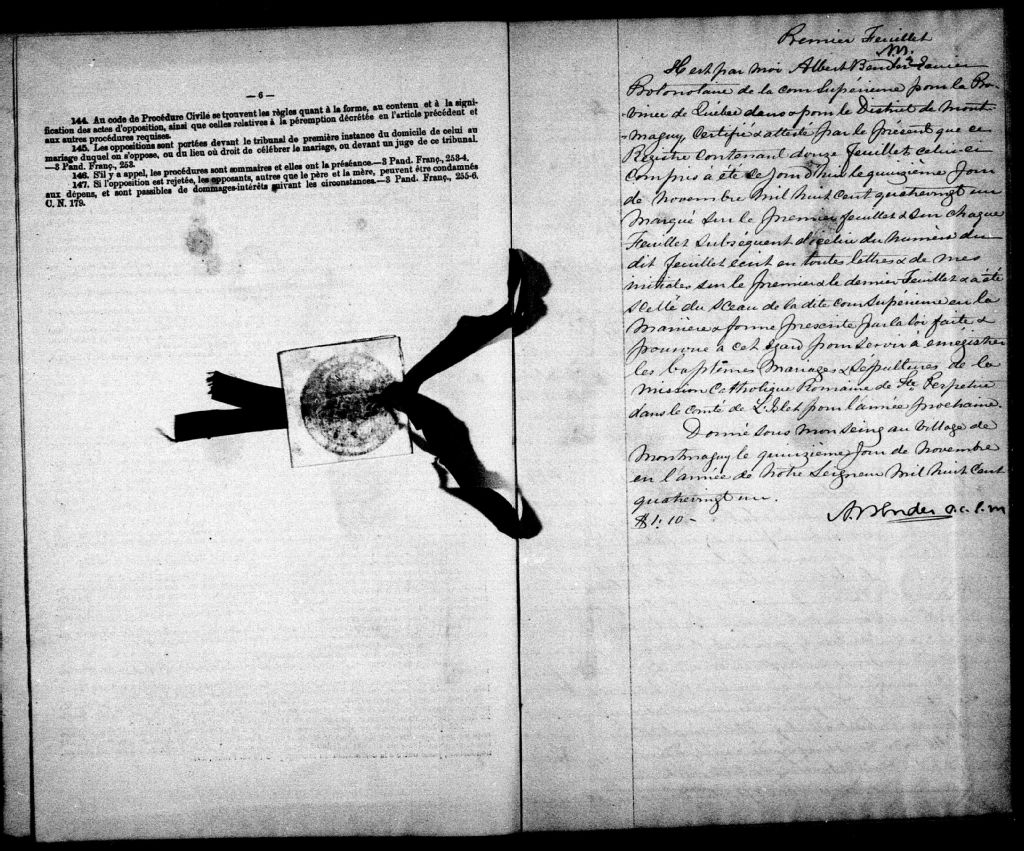 — 6 —
144. Au code de Procédure Civile se trouvent les règles quant à la forme, au contenu et à la signi-
fication des actes d'opposition, ainsi que celles relatives à la péremption décrétée en l'article précédent et
aux autres procédures requises.
145. Les oppositions sont portées devant le tribunal de première instance du domicile de celui au
mariage duquel on s'oppose, ou du lieu où droit de célébrer le mariage, ou devant un juge de ce tribunal.
—3 Pand. Franç., 253.
146. S'il y a appel, les procédures sont sommaires et elles ont la préséance.—3 Pand. Franç., 253-4.
147. Si l'opposition est rejetée, les opposants, autres que le père et la mère, peuvent être condamnés
aux dépens, et sont passibles de dommages-intérêts suivant les circonstances.—3 Pand. Franç., 255-6.
C. N. 179.
Premier Feuillet
Il est par moi Albert Bender
Protonotaire de la cour Supérieure pour la Pro-
vince de Québec dans & pour le District de Mont-
-maguy, Certifié & attesté par le présent que ce
Registre contenant douze feuillets celui-ci
compris a été ce jourd'hui le quinzième jour
de Novembre mil huit cent quatrevingt un
marqué sur le premier feuillet & sur chaque
Feuillet subséquent d'icelui du numéro du
dit feuillet écrit en toutes lettres & de mes
initiales sur le premier & le dernier Feuillet & a été
scellé du sceau de la dite cour Supérieure en la
manière & forme prescrite par la loi faite &
pourvue à cet égard pour servir à enregistrer
les baptêmes mariages & sépultures de la
mission Catholique Romaine de Ste Perpetue
dans le comté de L'Islet pour l'année prochaine.
Donné sous mon seing au village de
Montmaguy le quinzième jour de Novembre
en l'année de Notre Seigneur mil huit cent
quatrevingt un.
$1.10-
A. Bender